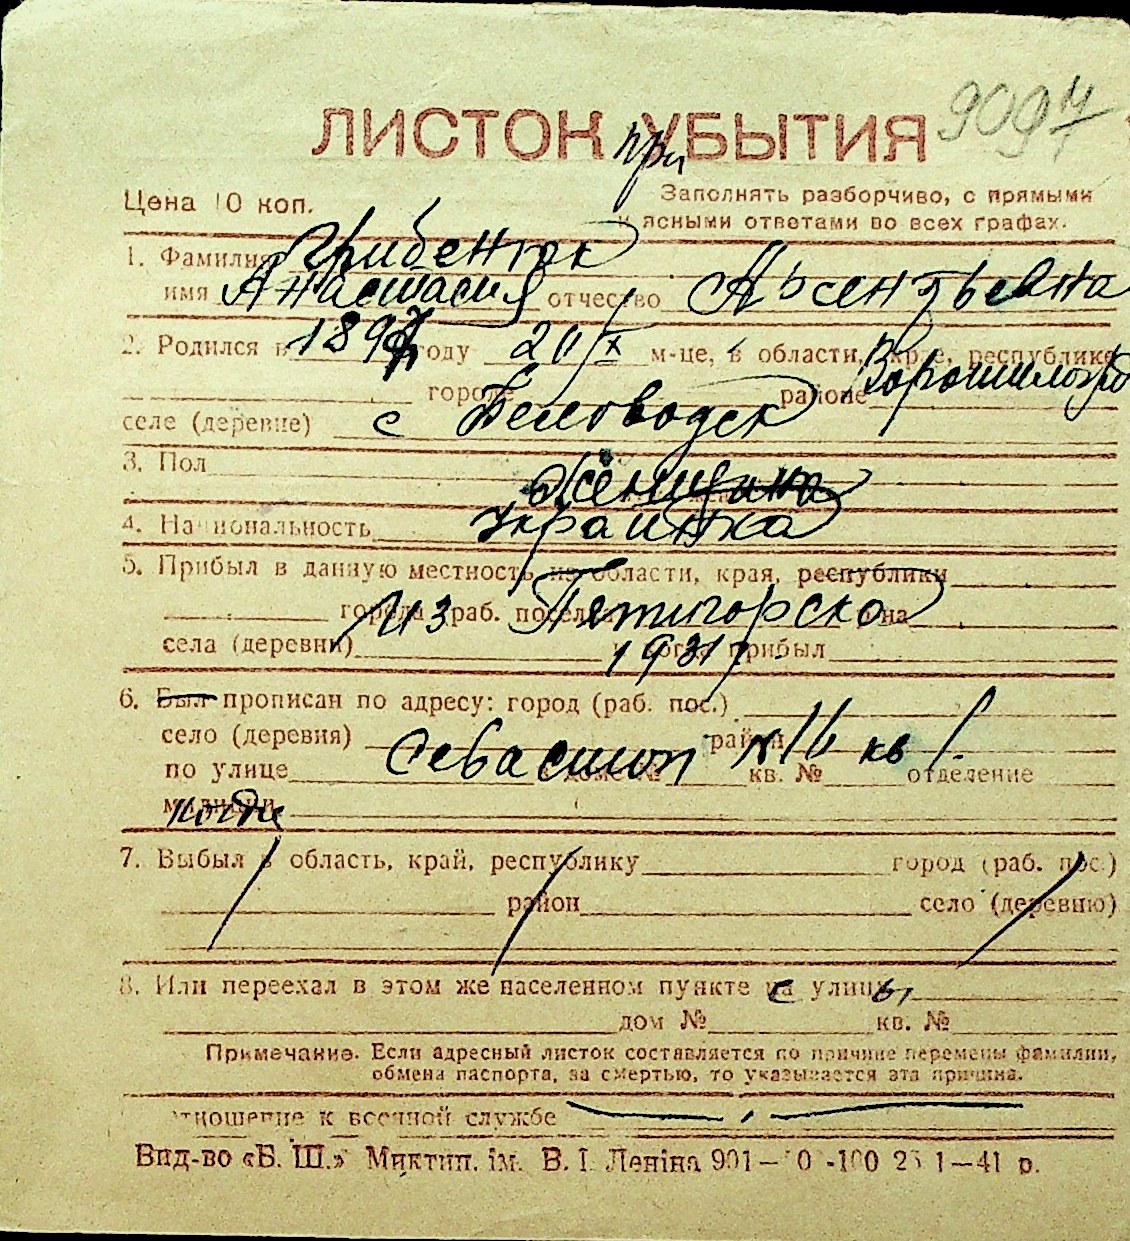 9097
ЛИСТОК УБЫТИЯ
при
Цена 10 коп.
Заполнять разборчиво, с прямыми
и ясными ответами во всех графах.
1. Фамилия Грибенюк
имя Анастасия отчество Арсентьевна
2. Родился в 1897 году 20/X м-це, в области, крае, республике
городе районе Ворошиловгр
селе (деревне) с Беловодск
3. Пол Женщина
4. Национальность украинка
5. Прибыл в данную местность из области, края, республики
города (раб. поселка из Пятигорска на
села (деревни) и когда прибыл 1931 г.
6. Был прописан по адресу: город (раб. пос.)
село (деревня) район
по улице Севастоп дом № 16 кв. № 1 отделение
милиции
7. Выбыл в область, край, республику город (раб. пос.)
район село (деревню)
8. Или переехал в этом же населенном пункте с улицы
дом № кв. №
Примечание. Если адресный листок составляется по причине перемены фамилии,
обмена паспорта, за смертью, то указывается эта причина.
отношение к военной службе
Вид-во «Б. Ш.» Миктип. ім. В. І. Леніна 901— 1—41 р.